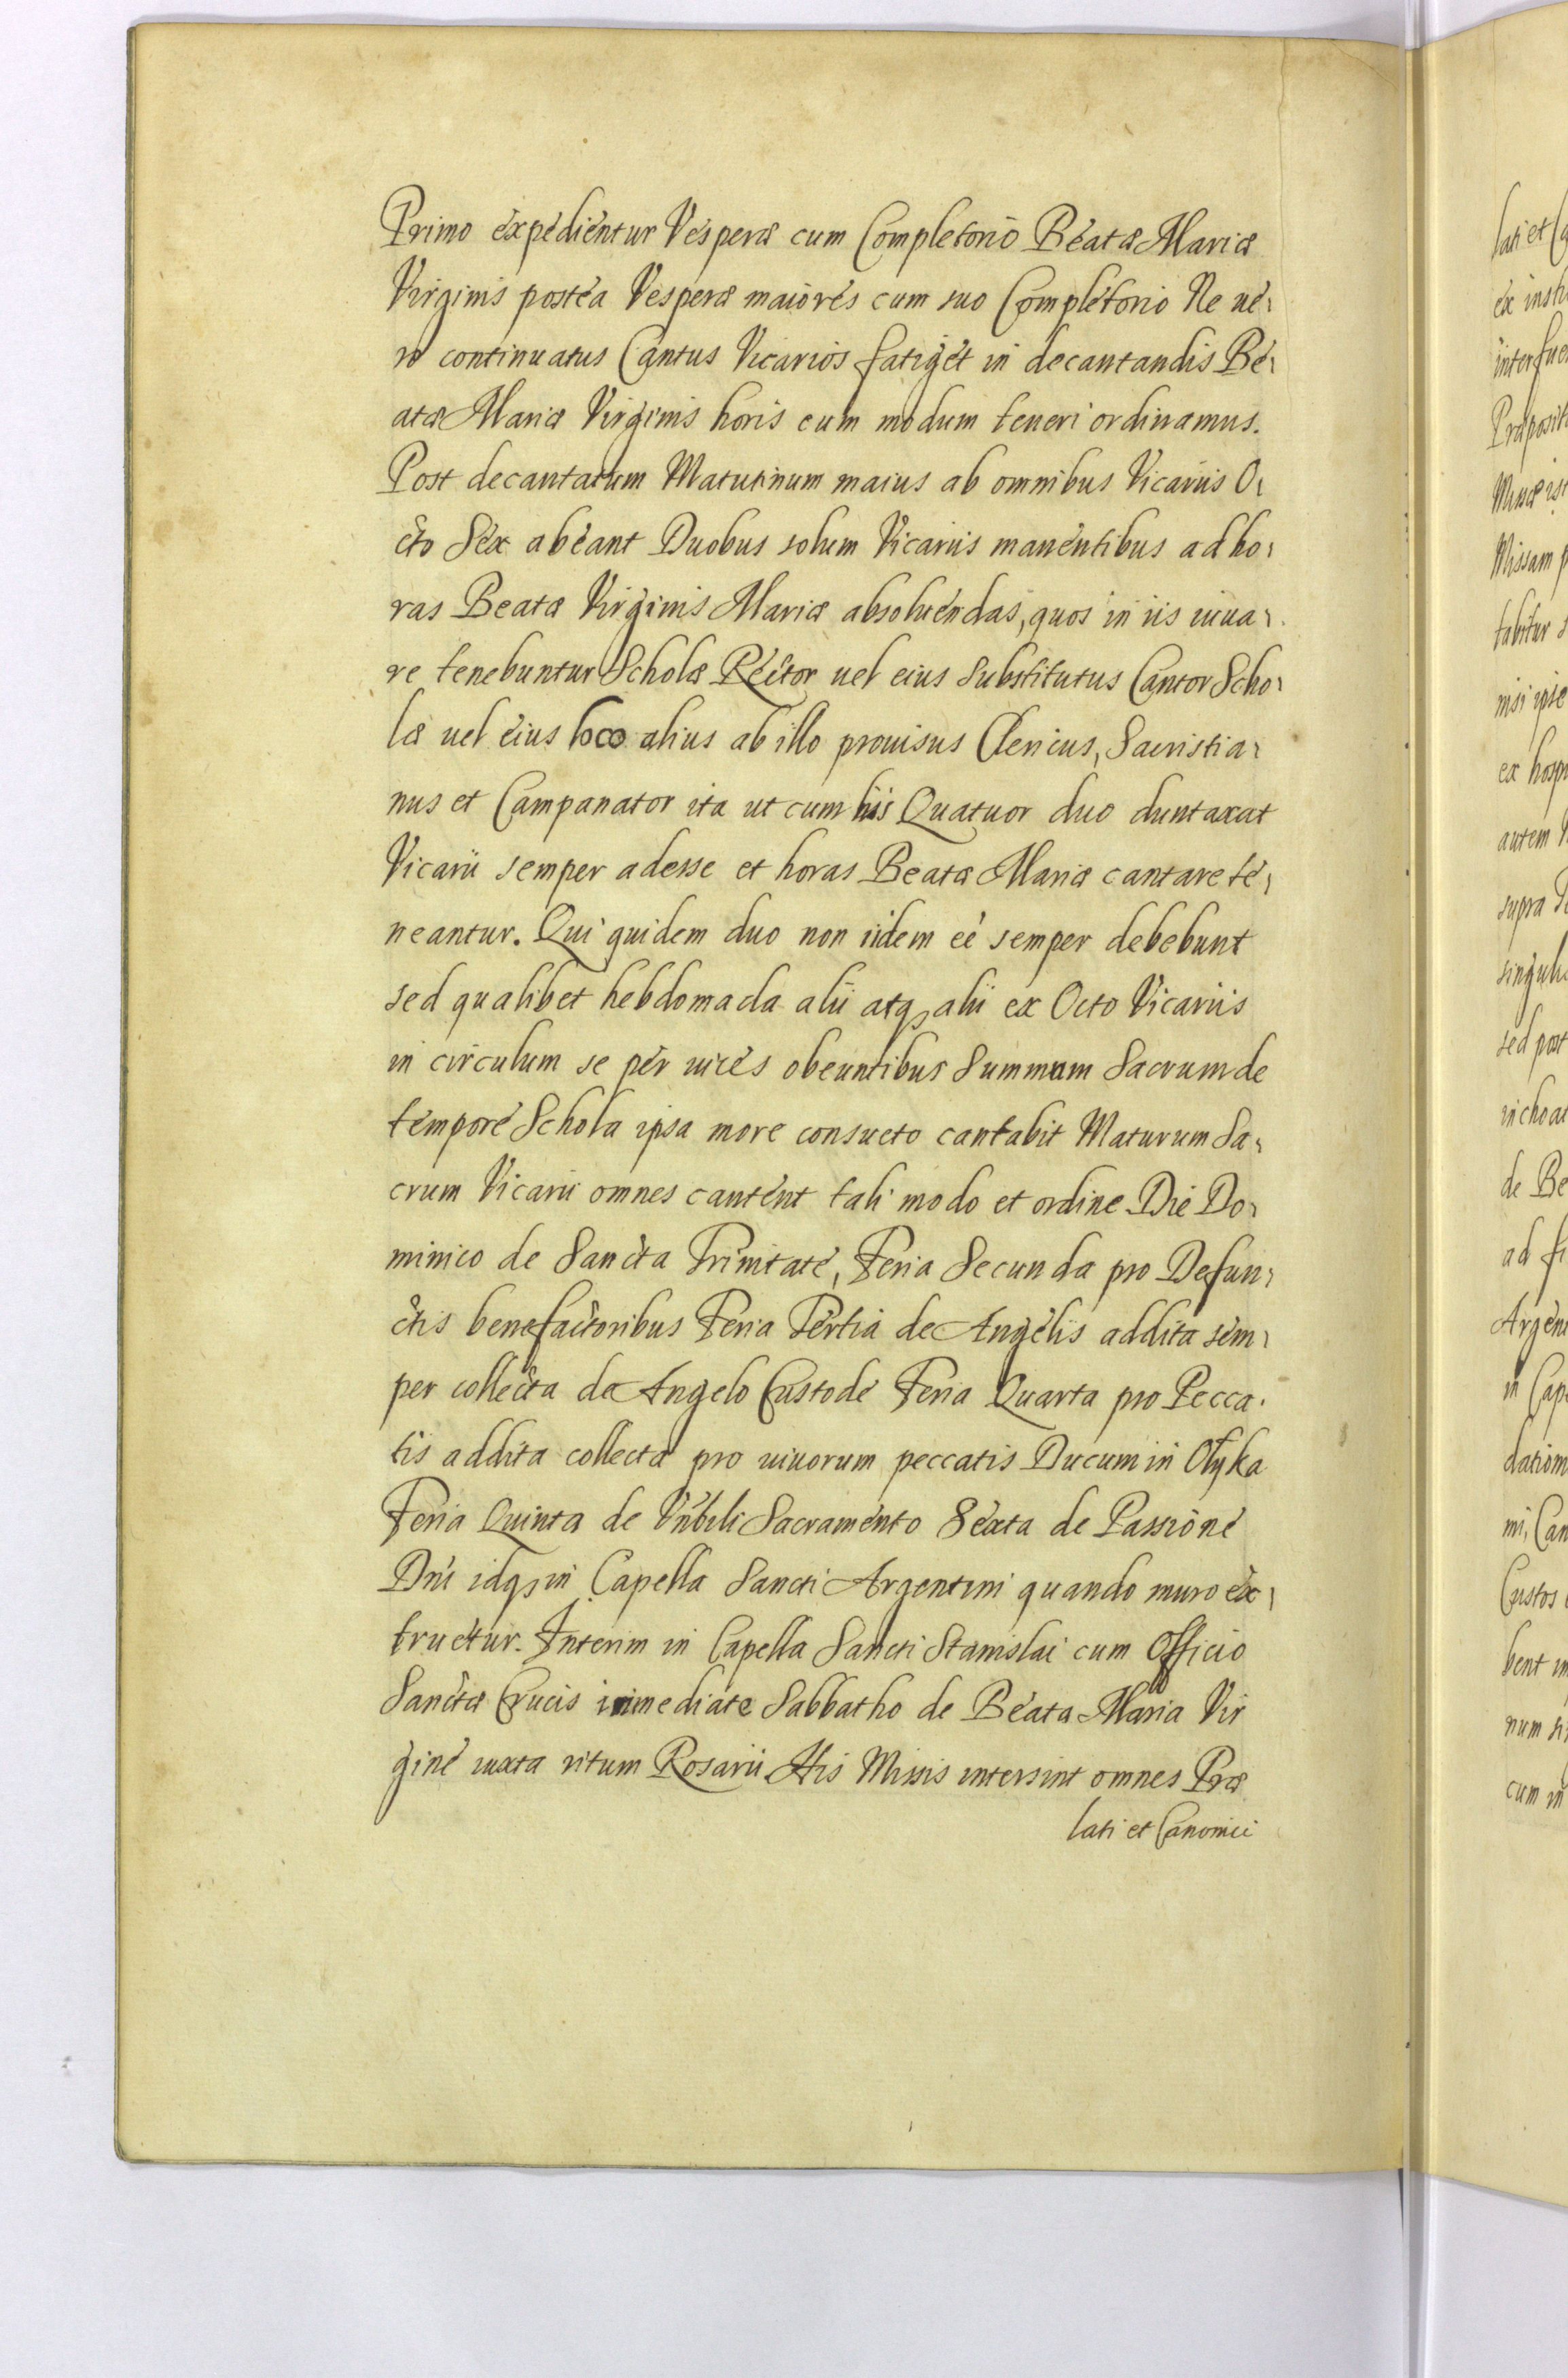 Primo expedientur Vesperæ cum Completorio Beatæ Mariæ
Virginis postea Vesperæ maiores cum suo Completorio Ne ue-
ro continuatus Cantus Vicarios fatiget in decantandis Be-
atæ Mariæ Virginis horis eum modum teneri ordinamus.
Post decantatum Matutinum maius ab omnibus Vicariis O-
cto Sex abeant Duobus solum Vicariis manentibus ad ho-
ras Beatæ Virginis Mariæ absoluendas, quos in iis iuua-
re tenebuntur Scholæ Rector uel eius Substitutus Cantor Scho-
læ uel eius loco alius ab illo prouisus Clericus, Sacristia-
nus et Campanator ita ut cum his Quatuor duo duntaxat
Vicarii semper adesse et horas Beatæ Mariæ cantare te-
neantur. Qui quidem duo non iidem eé semper debebunt
sed qualibet hebdomada alii atq, alii ex Octo Vicariis
in circulum se per uices obeuntibus Summum Sacrum de
tempore Schola ipsa more consueto cantabit Maturum Sa-
crum Vicarii omnes cantent tali modo et ordine Die Do-
minico de Sancta Trinitate, Feria Secunda pro Defun-
ctis benefactoribus Feria Tertia de Angelis addita sem-
per collecta de Angelo Custode Feria Quarta pro Pecca-
tis addita collecta pro uiuorum peccatis Ducum in Olyka
Feria Quinta de Vñbili Sacramento Sexta de Passione
Dni idq, in Capella Sancti Argentini quando muro ex-
truetur. Interim in Capella Sancti Stanislai cum Officio
Sanctæ Crucis immediate Sabbatho de Beata Maria Vir
gine iuxta ritum Rosarii His Missis intersint omnes Præ
lati et Canonici